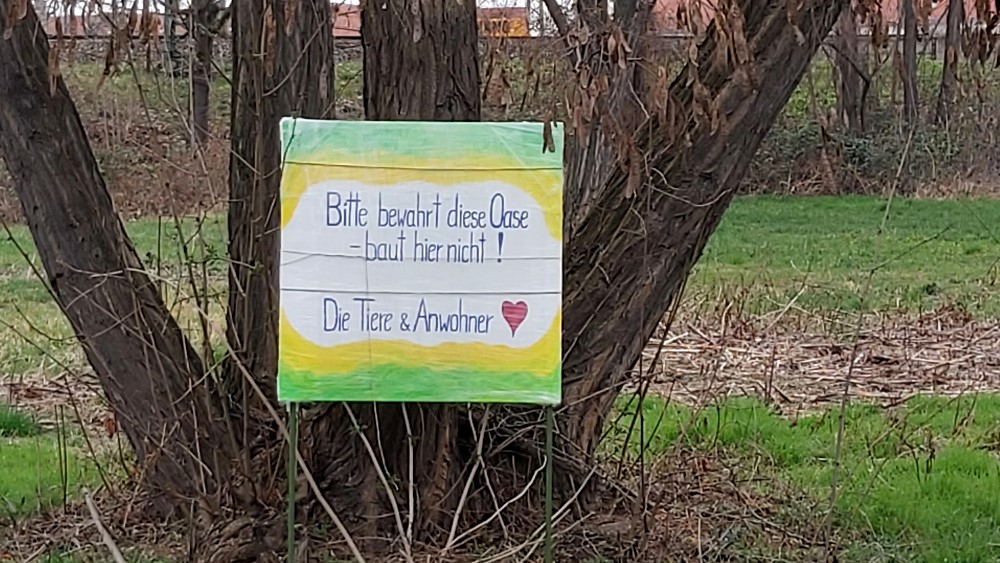 Bitte bewahrt diese Oase
- baut hier nicht !
Die Tiere & Anwohner